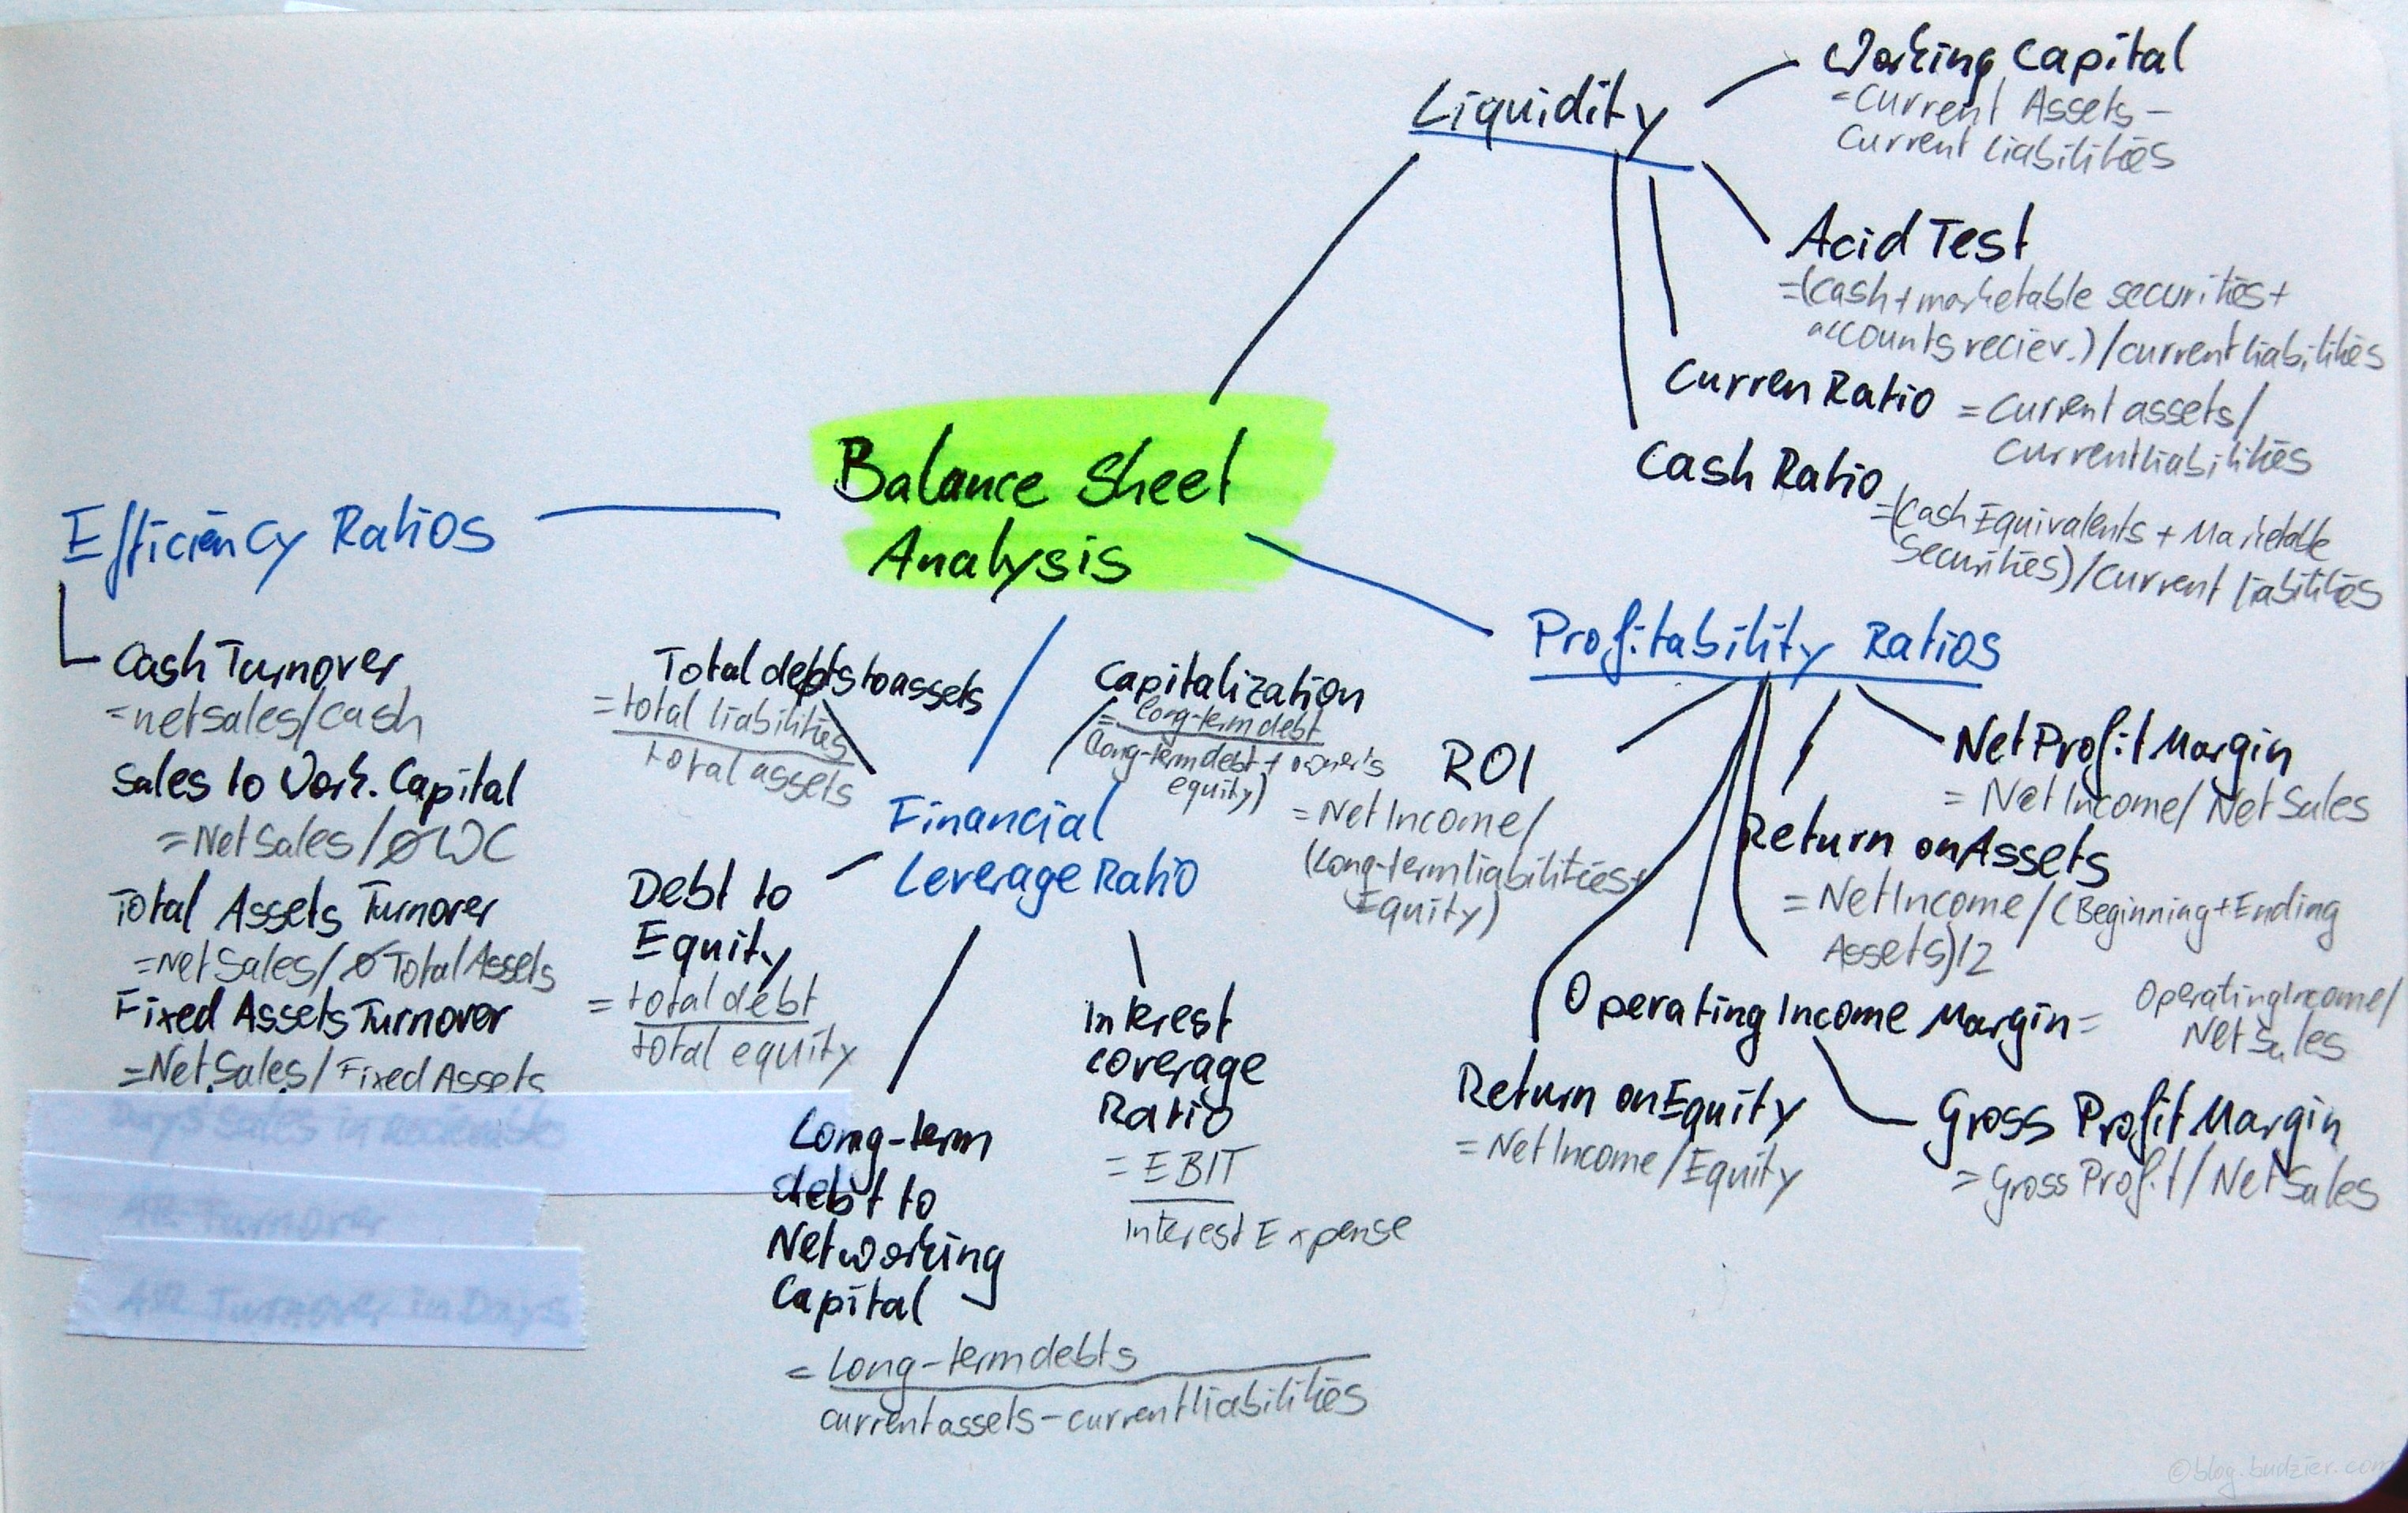 Balance Sheet
Analysis
Liquidity
Working Capital
=Current Assets-
Current Liabilities
Acid Test
=(cash+marketable securities+
accounts reciev.)/current liabilities
Curren Ratio =Current assets/
Current liabilities
Cash Ratio
=(Cash Equivalents + Marketable
Securities)/Current liabilities
Profitability Ratios
Net Profit Margin
= Net Income/Net Sales
Return on Assets
= Net Income/(Beginning+Ending
Assets)/2
Operating Income Margin= Operating Income/
Net Sales
Gross Profit Margin
= Gross Profit/Net Sales
Return on Equity
= Net Income/Equity
ROI
= Net Income/
(Long-term liabilities+
Equity)
Financial
Leverage Ratio
Capitalization
= long-term debt
(long-term debt + owner's
equity)
Total debts to assets
= total liabilities
total assets
Debt to
Equity
= total debt
total equity
Long-term
debt to
Net working
Capital
= Long-term debts
current assets - current liabilities
Interest
coverage
Ratio
= EBIT
Interest Expense
Efficiency Ratios
Cash Turnover
=net sales/cash
Sales to Work. Capital
=Net Sales/ØWC
Total Assets Turnover
=Net Sales/ØTotal Assets
Fixed Assets Turnover
=Net Sales/Fixed Assets
Days Sales in
Turnover
Turnover in Days
©blog.budzier.com